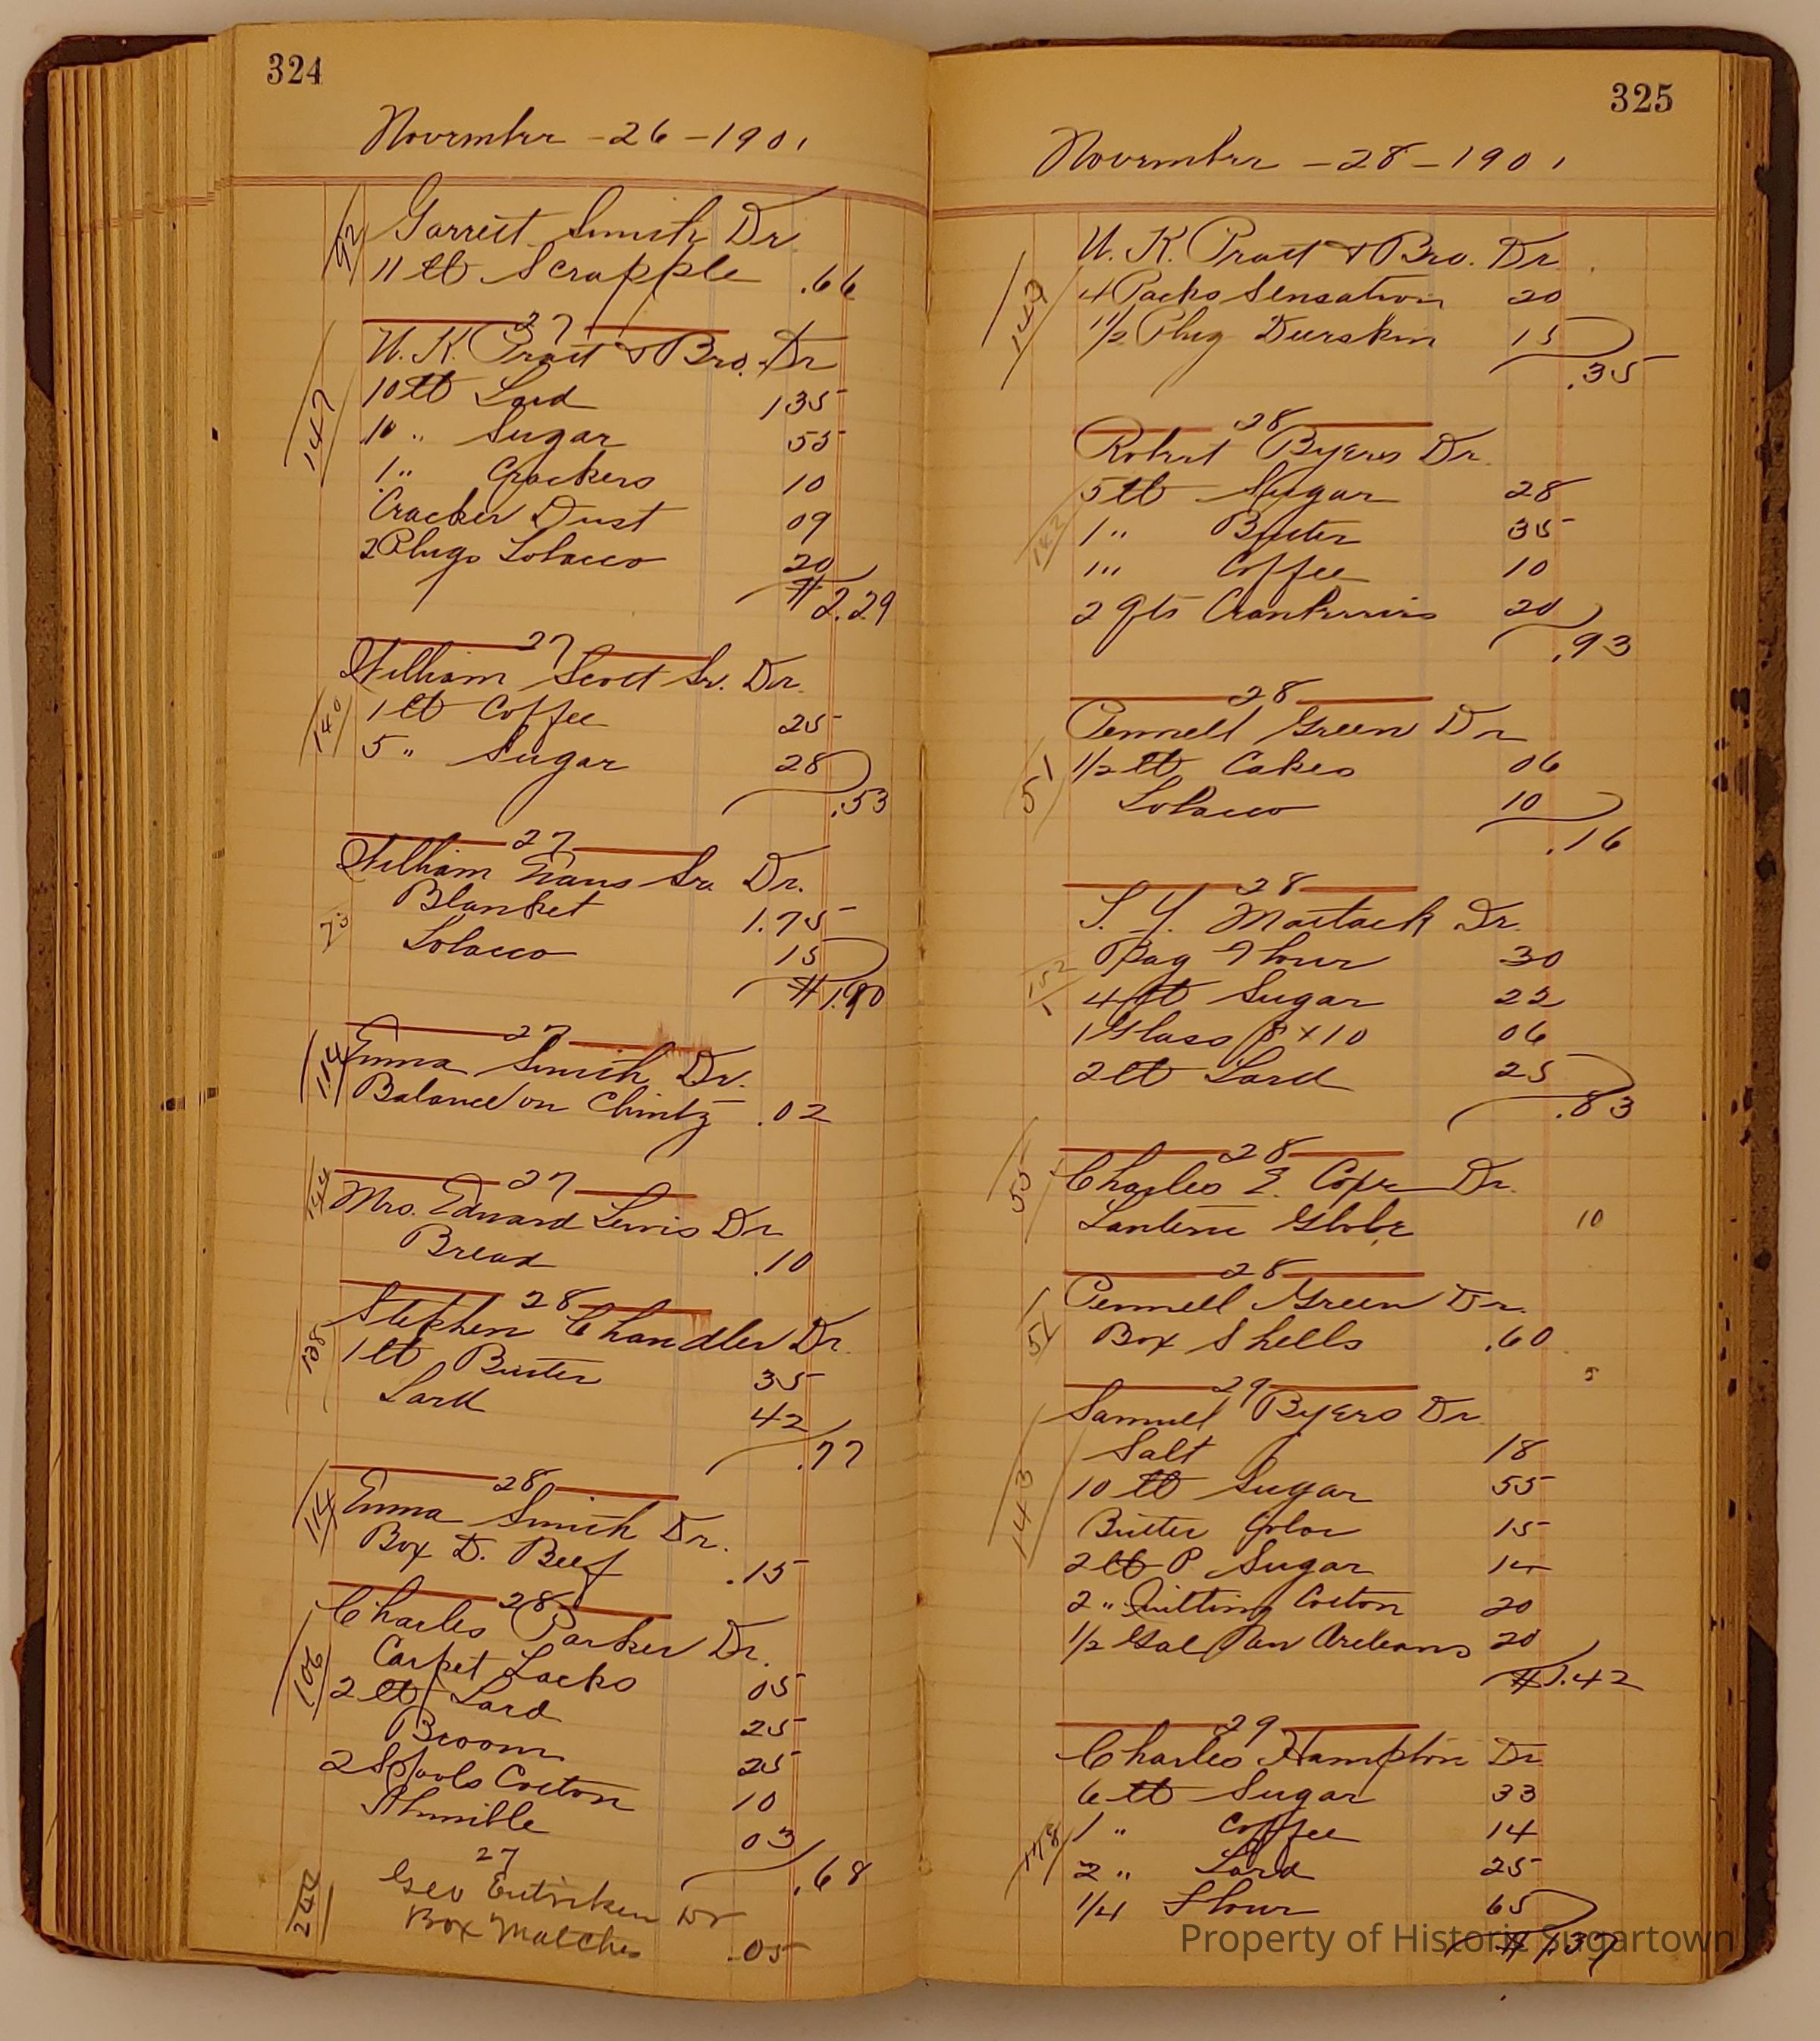 324
November - 26 - 1901
92
Garrett Smith Dr.
11 lb Scrapple .66
27
147
W. K. Pratt & Bro. Dr
10 lb Lard 135
10 " Sugar 55
1 " Crackers 10
Cracker Dust 09
2 Plugs Tobacco 20
$2.29
27
William Scott Sr. Dr.
140
1 lb Coffee 25
5 " Sugar 28
.53
27
William Evans Sr. Dr.
Blanket 1.75
Tobacco 15
$1.90
27
114
Emma Smith Dr.
Balance on Chintz .02
27
144
Mrs. Edward Lewis Dr
Bread .10
28
Stephen Chandler Dr.
138
1 lb Butter 35
Lard 42
.77
28
114
Emma Smith Dr.
Box D. Beef .15
28
Charles Parker Dr.
106
Carpet Tacks 05
2 lb Lard 25
Broom 25
2 Spools Cotton 10
Thimble 03
.68
27
Geo Entriken Dr
Box Matches .05
325
November - 28 - 1901
W. K. Pratt & Bro. Dr.
4 Packs Sensation 20
1 1/2 Plug Deerskin 15
.35
28
Robert Byers Dr.
5 lb Sugar 28
1 " Butter 35
1 " Coffee 10
2 Qts Cranberries 20
.93
28
Pennell Green Dr
51
1/2 lb Cakes 06
Tobacco 10
.16
28
Mattack Dr.
152
Bag Flour 30
4 lb Sugar 22
1 Glass 8 x 10 06
2 lb Lard 25
.83
28
55
Charles E. Cope Dr.
Lantern Globe 10
28
51
Pennell Green Dr.
Box Shells .60
5
29
Samuel Byers Dr.
143
Salt 18
10 lb Sugar 55
Butter Color 15
2 lb P. Sugar 14
2 " Quilting Cotton 20
1/2 Gal New Orleans 20
$1.42
29
Charles Hampton Dr
6 lb Sugar 33
118
1 " Coffee 14
2 " Lard 25
1/4 Flour 65
$1.37
Property of Historic Sugartown